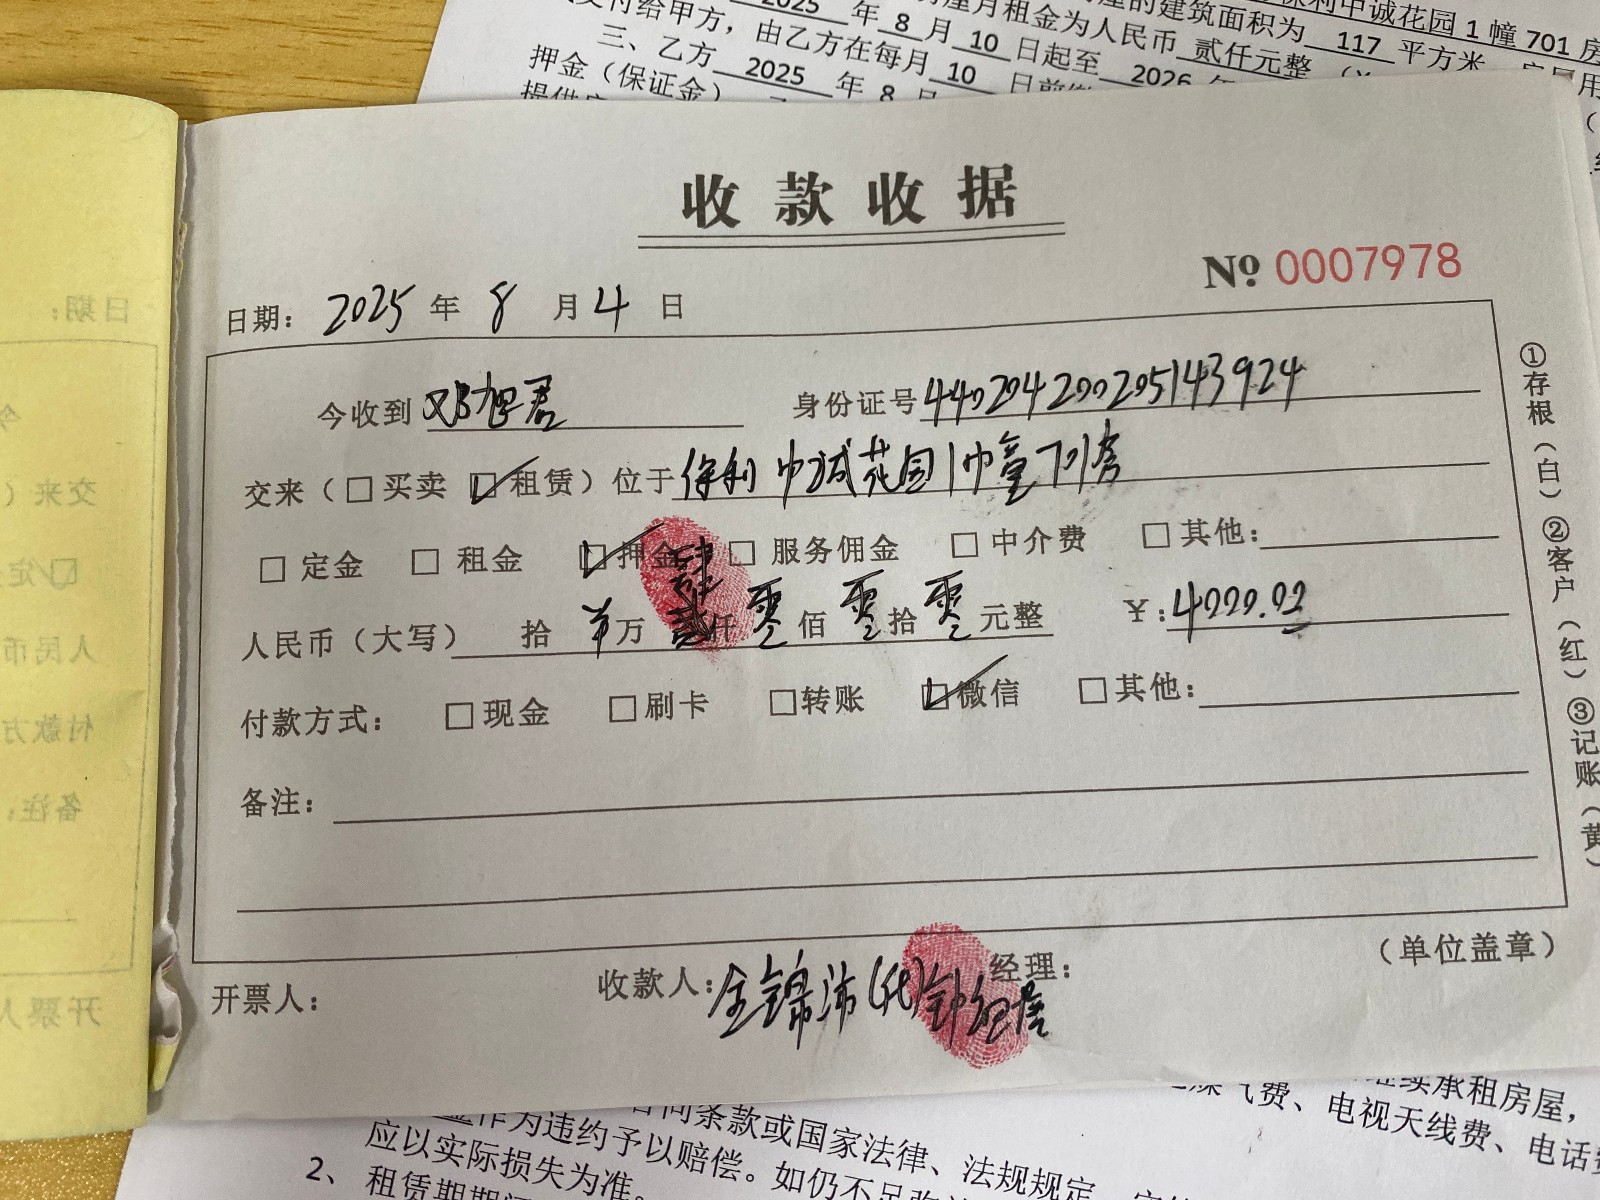 保利中诚花园1幢701房
屋的建筑面积为 117 平方米
房屋月租金为人民币 贰仟元整
三、乙方 2025 年 8 月 10 日起至 2026
交付给甲方，由乙方在每月 10 日前
押金（保证金）
收款收据
№ 0007978
日期： 2025 年 8 月 4 日
今收到 邓旭君 身份证号 440204200205143924
交来（□买卖 ☑租赁）位于 保利中诚花园1幢701房
□ 定金 □ 租金 ☑ 押金 □ 服务佣金 □ 中介费 □ 其他：
肆
人民币（大写） 拾 万 仟 零 佰 零 拾 零 元整 ￥：4000.00
付款方式： □ 现金 □ 刷卡 □ 转账 ☑ 微信 □ 其他：
备注：
（单位盖章）
开票人： 收款人： 金锦沛(代) 经理：
①存根（白）②客户（红）③记账（黄）
日期：
交来（
人民币
付款方
备注：
开票人
继续承租房屋，
煤气费、电视天线费、电话费
合同条款或国家法律、法规规定
金作为违约予以赔偿。如仍不足
应以实际损失为准。
2、租赁期